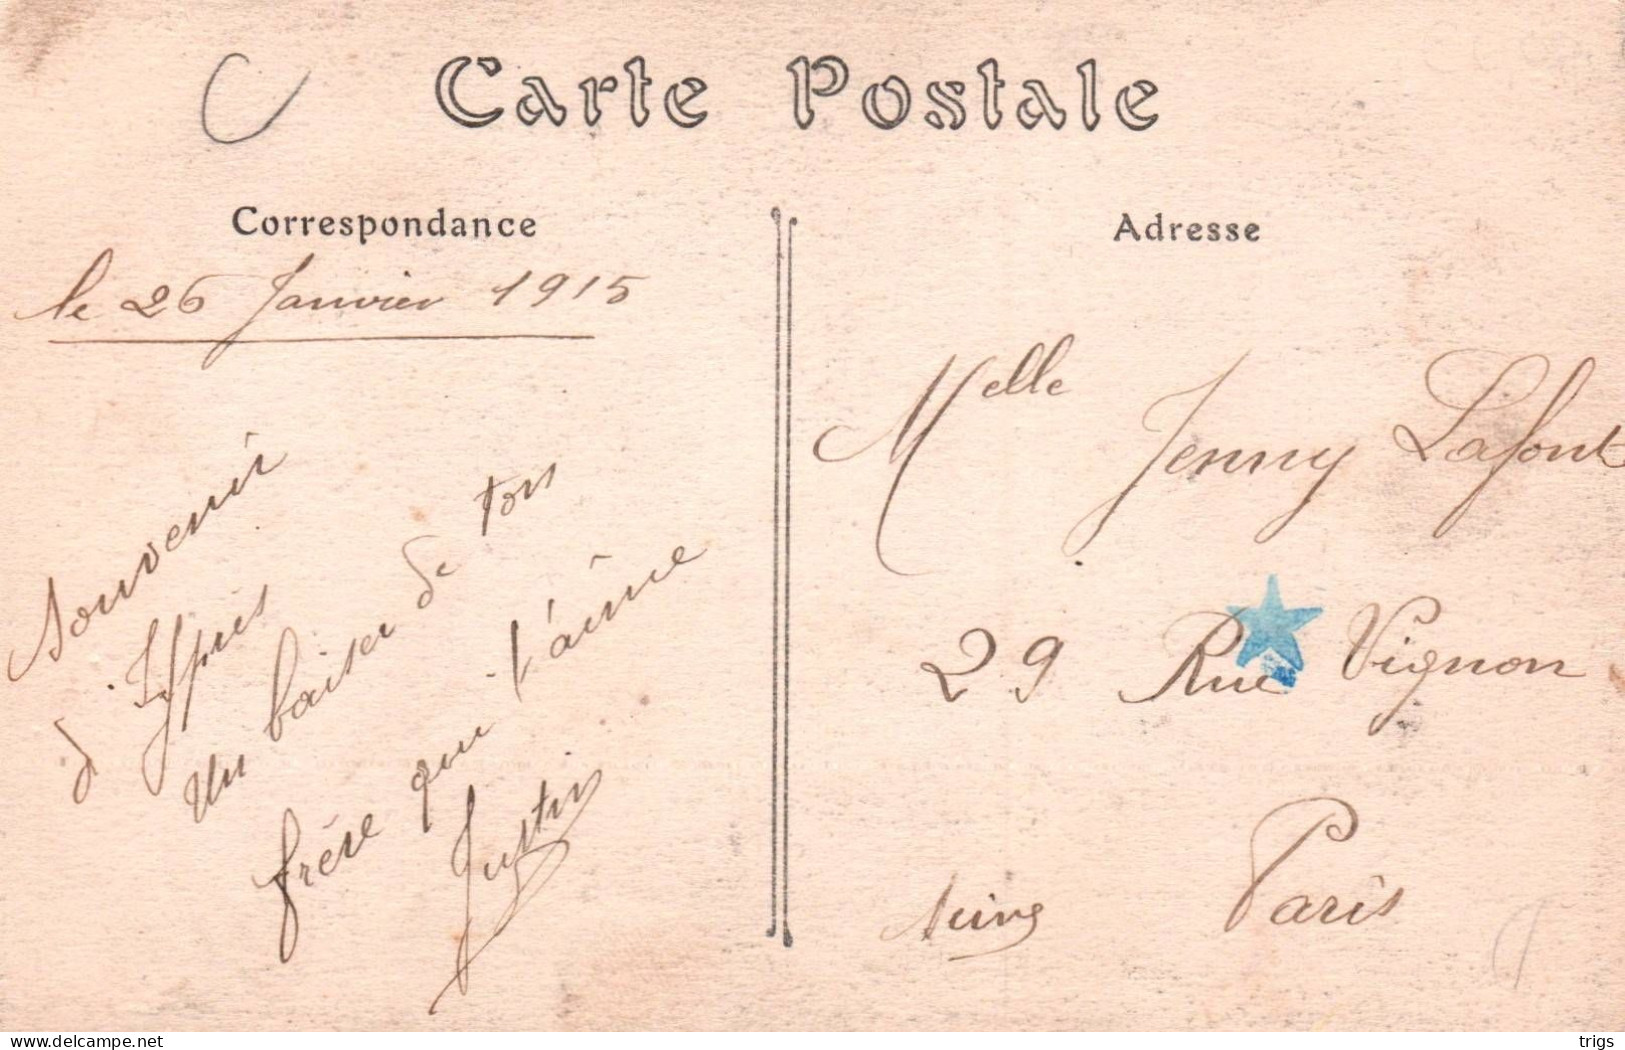 Carte Postale
Correspondance
le 26 Janvier 1915
Souvenir
d'Yppres
Un baiser de ton
frère qui t'aime
Justin
Adresse
Melle Jenny Lafont
29 Rue Vignon
Paris
Seine
www.delcampe.net
trigs